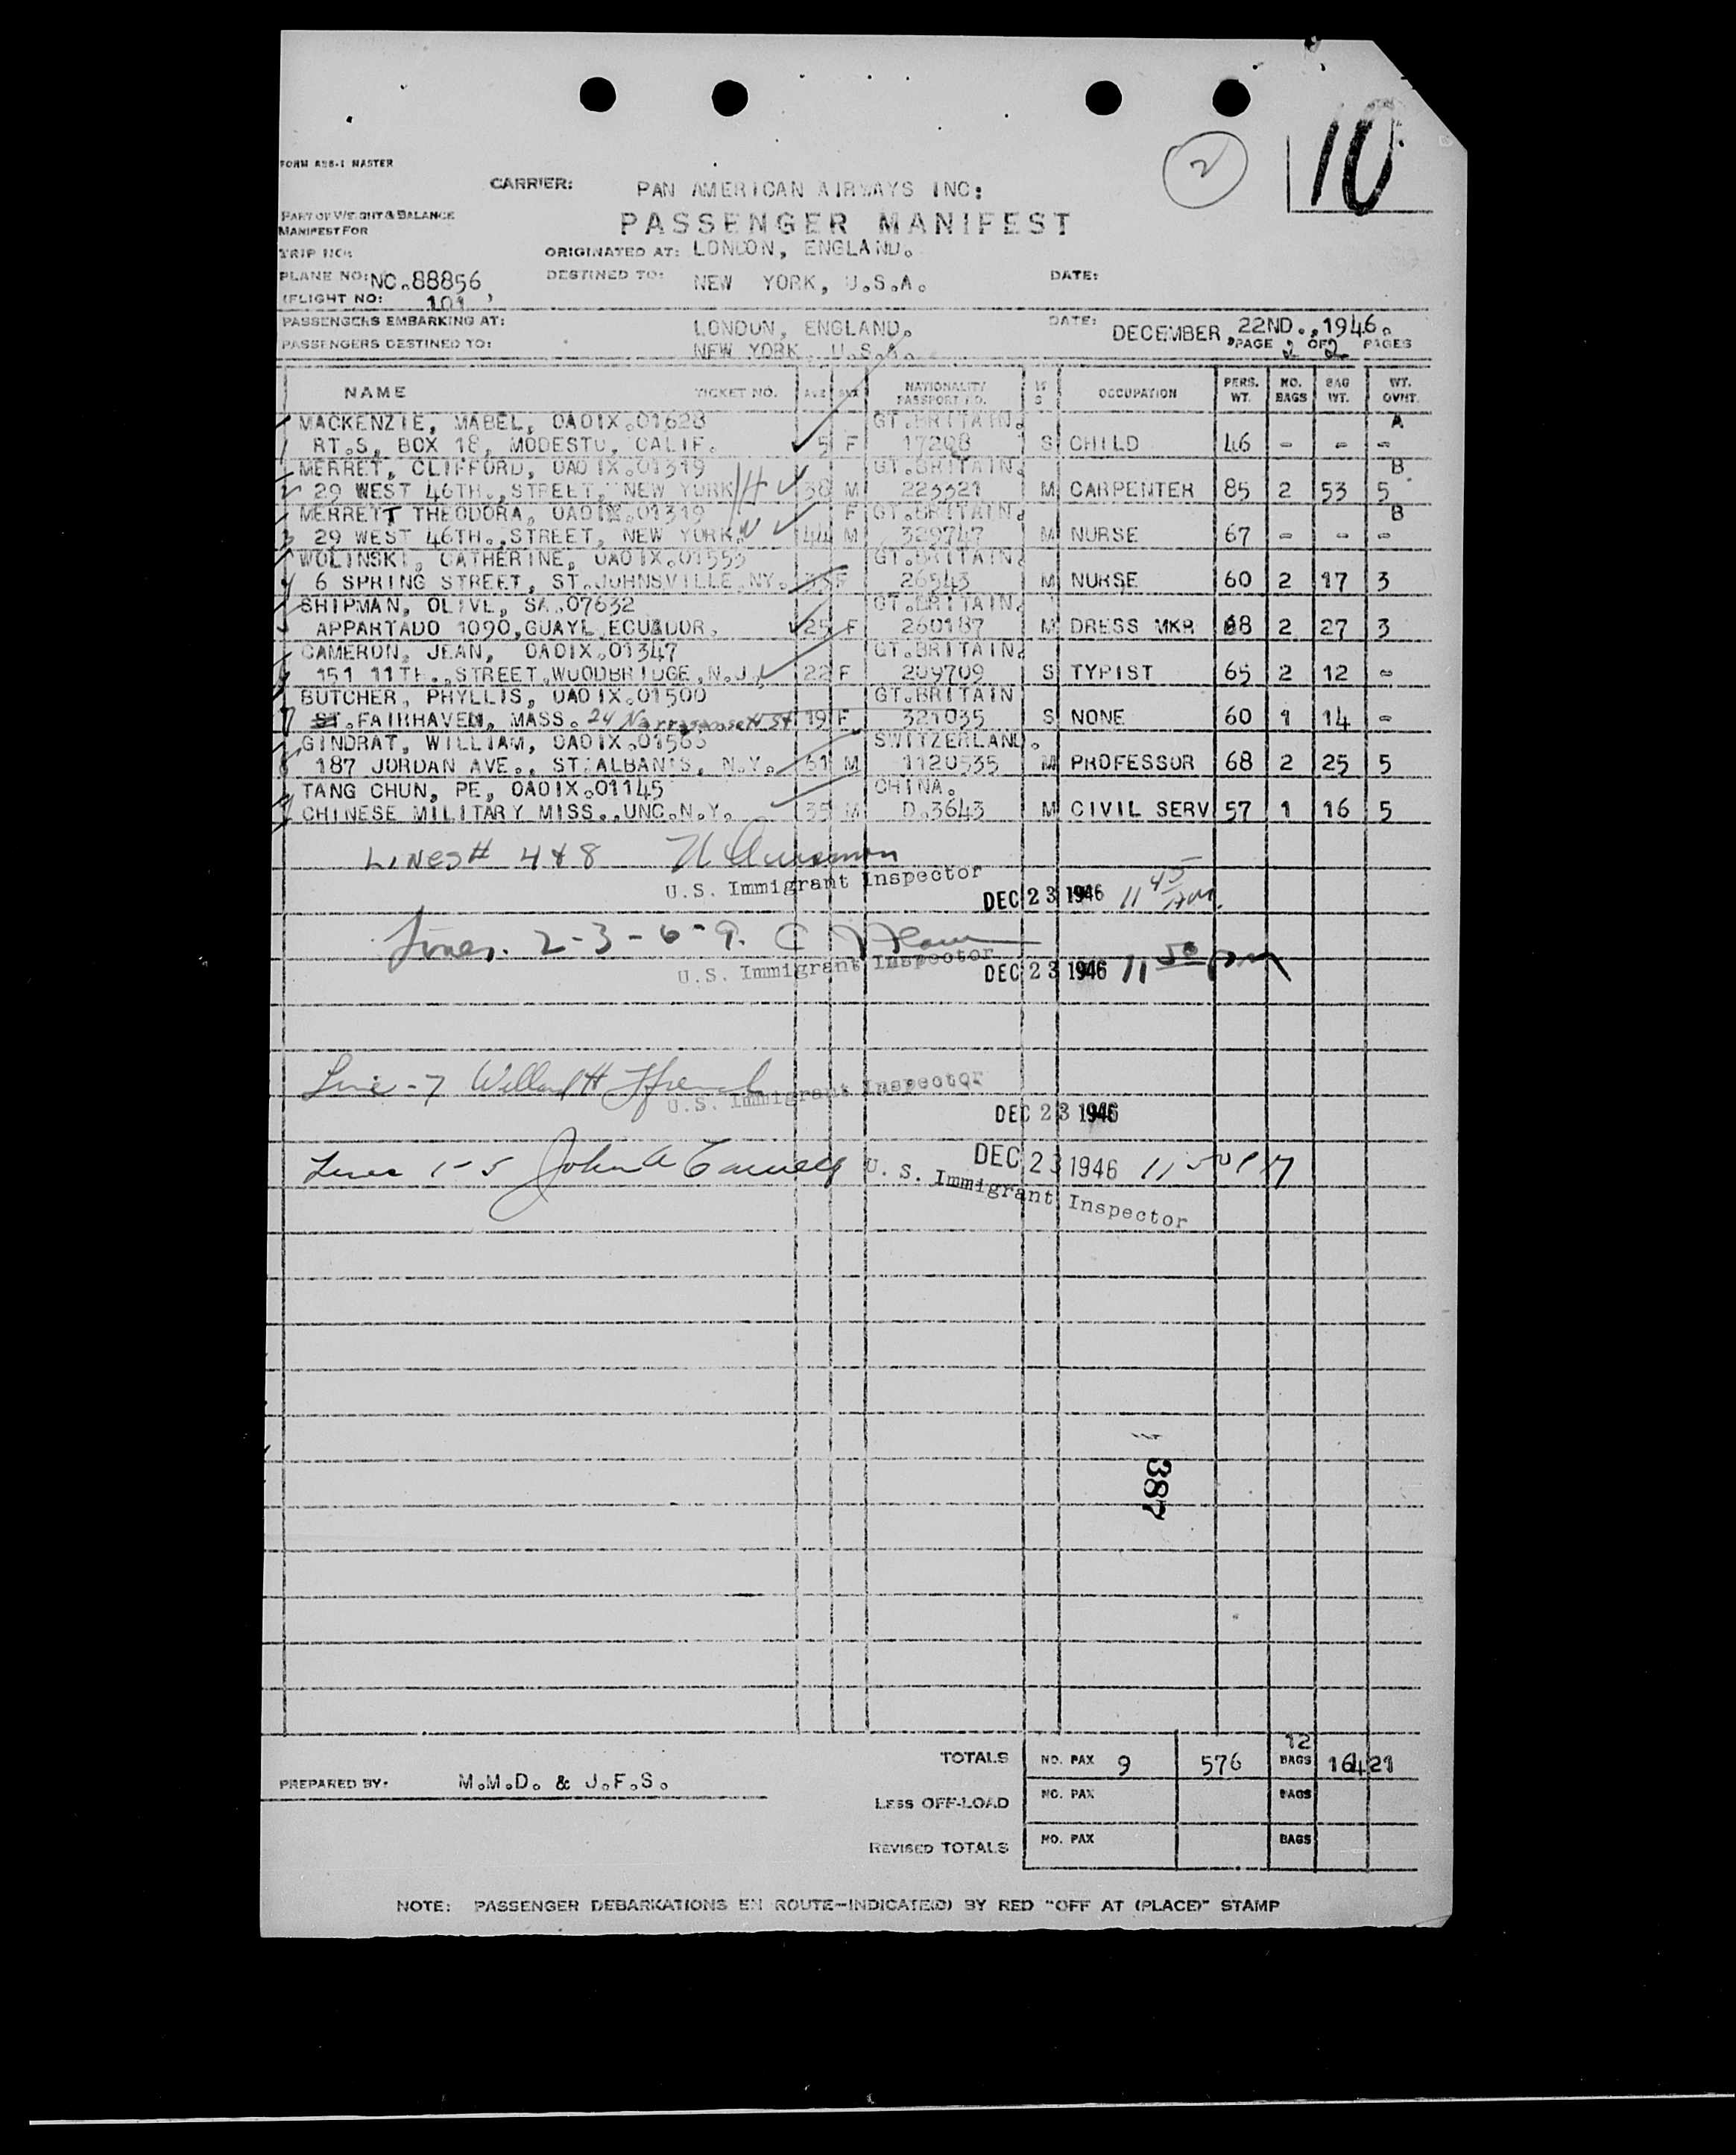 10
2
FORM ASB-1 MASTER
CARRIER: PAN AMERICAN AIRWAYS INC:
PART OF WEIGHT & BALANCE
MANIFEST FOR
PASSENGER MANIFEST
TRIP NO:
ORIGINATED AT: LONDON, ENGLAND.
PLANE NO: NC.88856
DESTINED TO: NEW YORK, U.S.A.
DATE:
(FLIGHT NO: 101 )
PASSENGERS EMBARKING AT: LONDON, ENGLAND.
DATE: DECEMBER, 22ND., 1946.
PASSENGERS DESTINED TO: NEW YORK, U.S.A.
PAGE 2 OF 2 PAGES
NAME TICKET NO. AGE SEX NATIONALITY PASSPORT NO. OCCUPATION PERS. WT. NO. BAGS BAG WT. WT. OVHT.
MACKENZIE, MABEL, OAOIX.01628 GT.BRITAIN. A
1 RT.5, BOX 18, MODESTO, CALIF. 5 F 17208 S CHILD 46 - - -
MERRET, CLIFFORD, OAOIX.01319 GT.BRITAIN. B
2 29 WEST 46TH.,STREET, NEW YORK 38 M 223321 M CARPENTER 85 2 53 5
MERRETT THEODORA, OAOIX.01319 F GT.BRITAIN. B
3 29 WEST 46TH.,STREET, NEW YORK. 44 M 329747 M NURSE 67 - - -
WOLINSKI, CATHERINE, OAOIX.01553 GT.BRITAIN.
4 6 SPRING STREET, ST.JOHNSVILLE.NY. F 26543 M NURSE 60 2 17 3
SHIPMAN, OLIVE, SA.07632 GT.BRITAIN.
APPARTADO 1090,GUAYL,ECUADOR. 25 F 260187 M DRESS MKR 68 2 27 3
CAMERON, JEAN, OAOIX.01347 GT.BRITAIN.
151 11TH.,STREET,WOODBRIDGE,N.J. 22 F 209709 S TYPIST 65 2 12 -
BUTCHER, PHYLLIS, OAOIX.01500 GT.BRITAIN
7 ST.FAIRHAVEN, MASS. 24 Narragansett St 19 F 321035 S NONE 60 1 14 -
GINDRAT, WILLIAM, OAOIX.01563 SWITZERLAND.
187 JORDAN AVE., ST.ALBANIS, N.Y. 61 M 1120535 M PROFESSOR 68 2 25 5
TANG CHUN, PE, OAOIX.01145 CHINA.
CHINESE MILITARY MISS.,UNC.N.Y. 35 M D.3643 M CIVIL SERV 57 1 16 5
LINES# 4 & 8
U.S. Immigrant Inspector
DEC 23 1946 11 45 AM.
Lines. 2-3-6-9.
U.S. Immigrant Inspector
DEC 23 1946 11 50 pm
Line-7 Willard H
U.S. Immigrant Inspector
DEC 23 1946
Lines 1-5 John A
DEC 23 1946 11 50 PM
U.S. Immigrant Inspector
387
TOTALS NO. PAX 9 576 12 BAGS 164 21
PREPARED BY: M.M.D. & J.F.S.
LESS OFF-LOAD NO. PAX BAGS
REVISED TOTALS NO. PAX BAGS
NOTE: PASSENGER DEBARKATIONS EN ROUTE-INDICATE(D) BY RED "OFF AT (PLACE)" STAMP